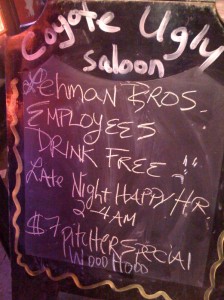 Coyote Ugly
Saloon
Lehman Bros.
Employees
Drink Free
Late Night Happy Hr.
2-4 AM
$7 Pitcher Special